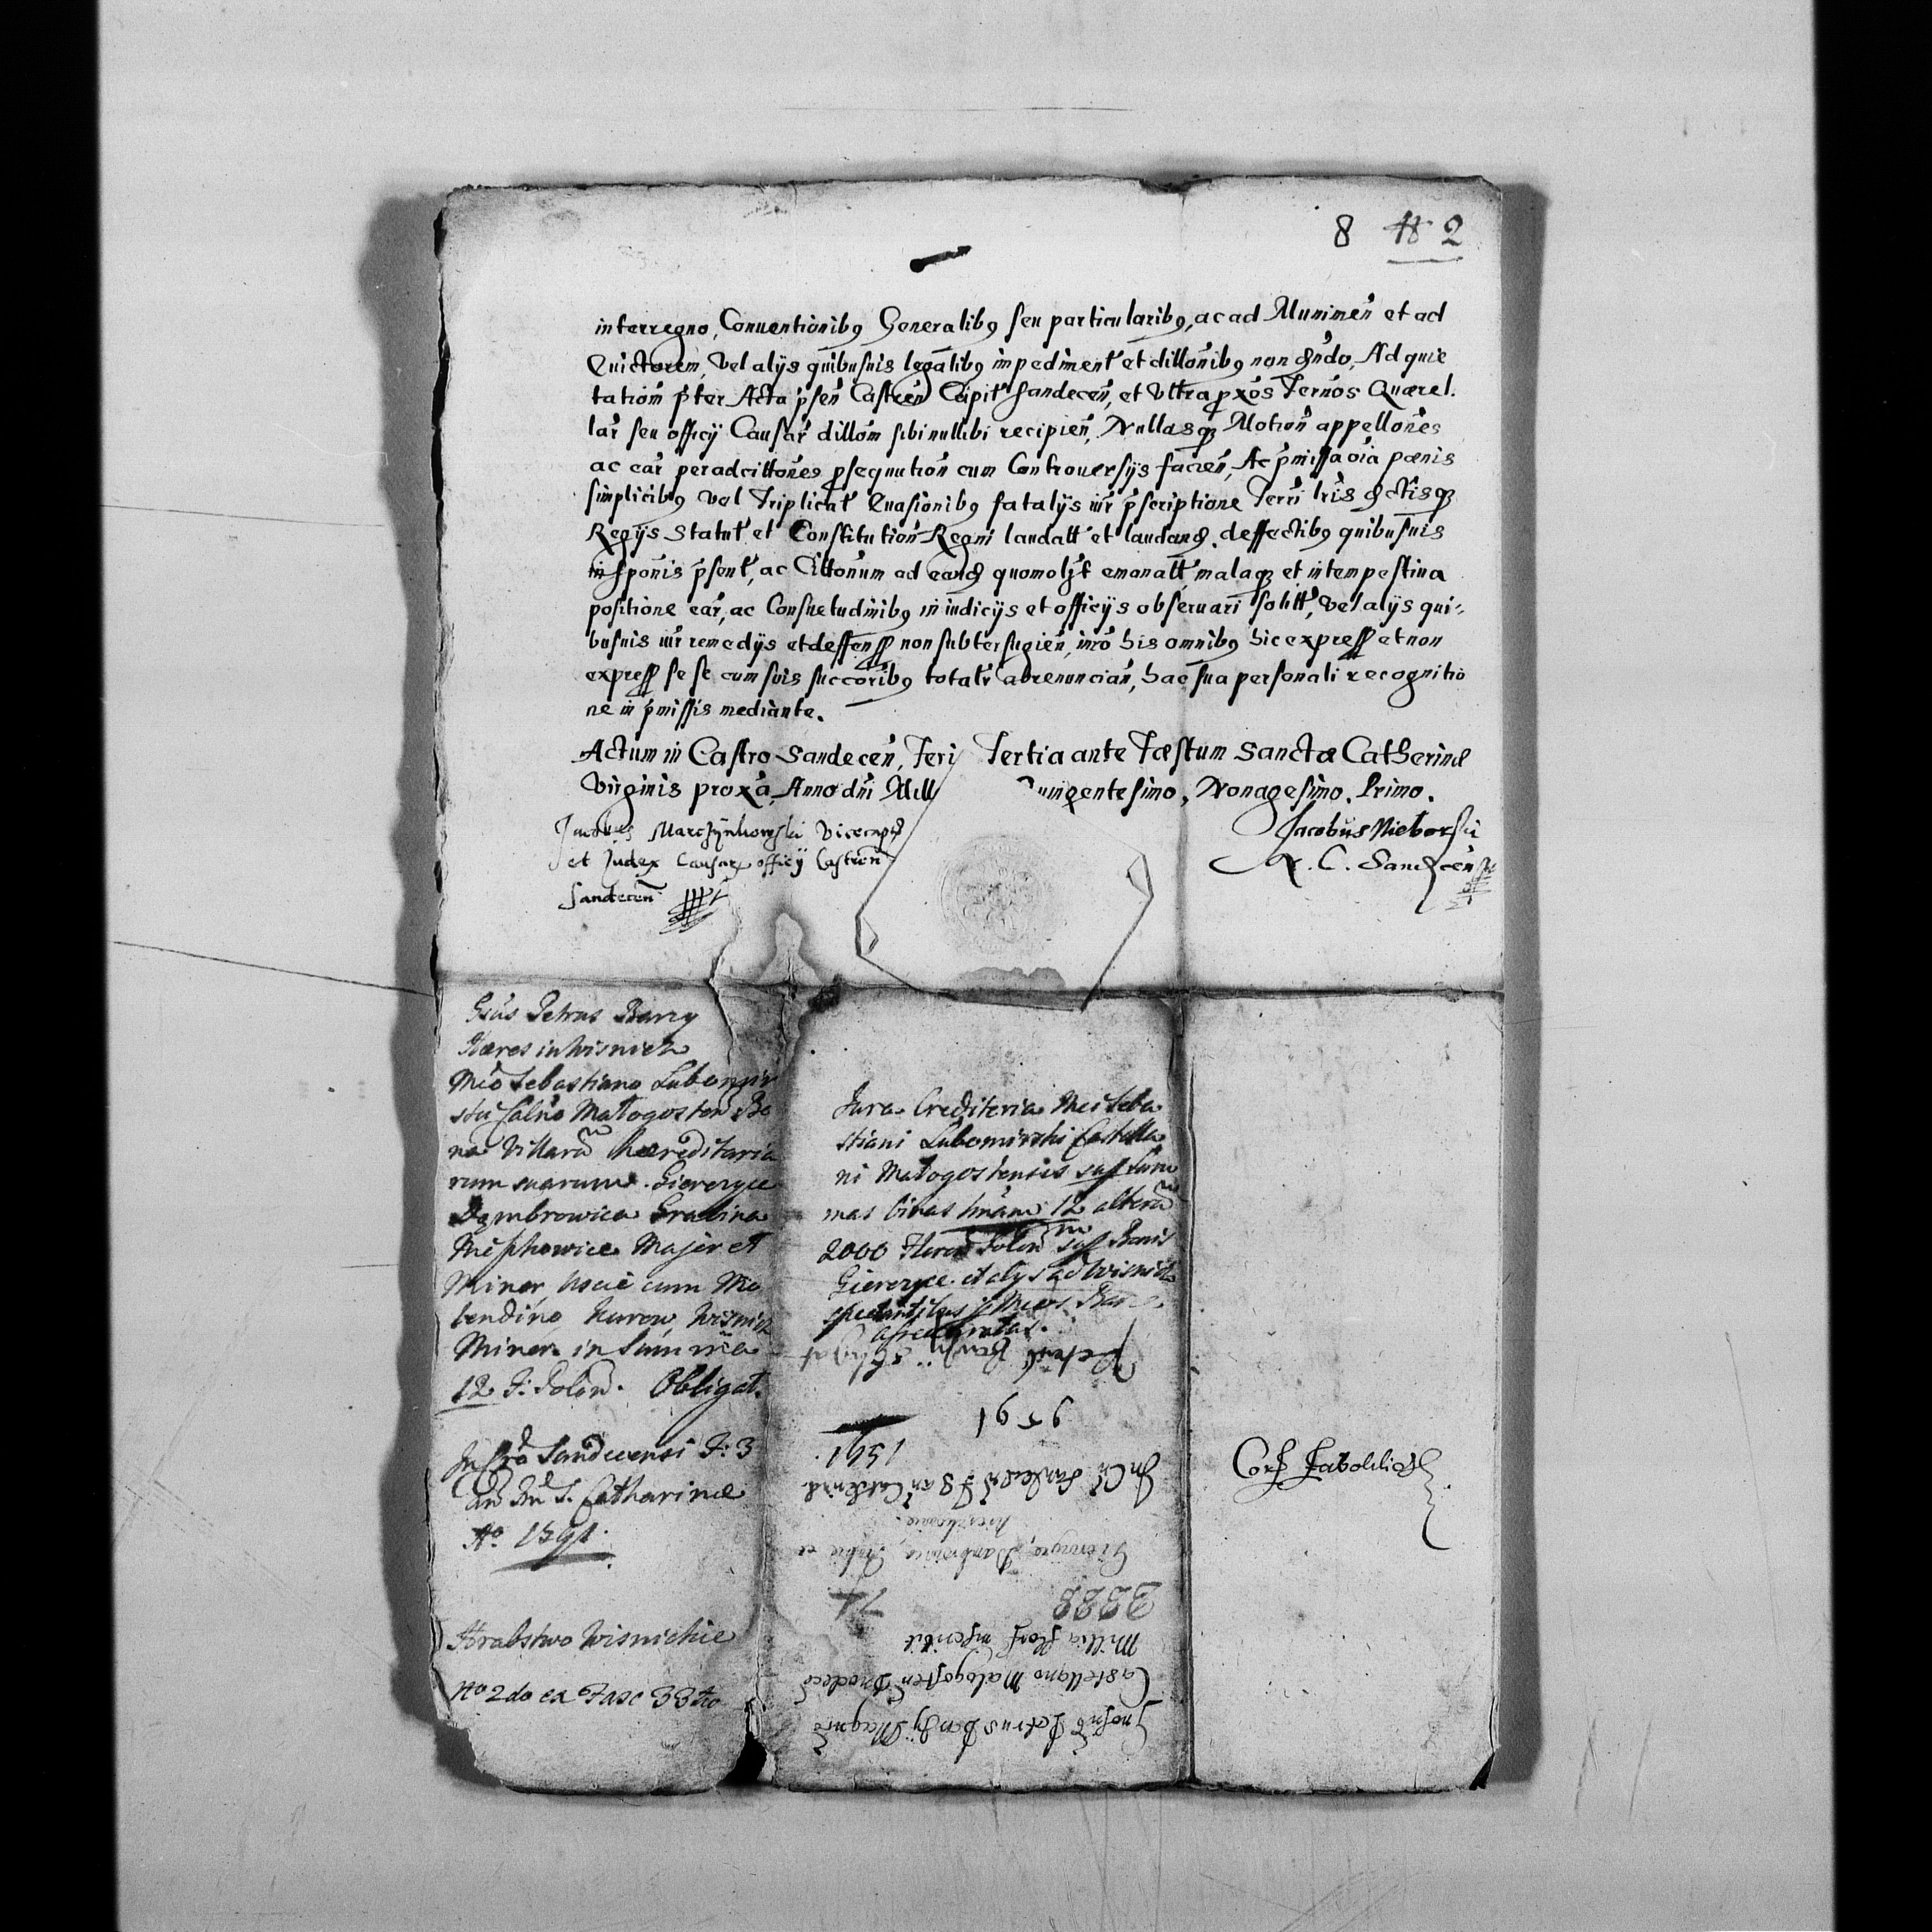 8 2
interregno, Conuentionibꝯ Generalibꝯ seu particularibꝯ, ac ad Munimen̄ et ad
Euictorem, Vel alijs quibusuis legalibꝯ impediment̄ et dillōnibꝯ non Ad quie
tation̄ p̄ter Acta p̄sen̄ Castren̄ Capit̄ Sandecen̄, et Vltra pxōs Ternos Quærel.
lar̄ seu officij Causar̄ dillōm sibi nullibi recipien̄, Nullasqꝫ Motion̄ appellōnes
ac ear̄ per adcittōnes ꝓsequution̄ cum Controuersijs facien̄, Ac p̄missa oīa pænis
simplicibꝯ vel Triplicat̄ Euasionibꝯ fatalijs iur̄ p̄scriptione Terrr̄
Regijs Statut̄ et Constitution̄ Regni laudatt̄ et laudand. deffectibꝯ quibusuis
Inspōnis p̄sent̄, ac Cittōnum ad eand quomolꝫt emanatt̄, malaqꝫ et intempestiua
positione ear̄, ac Consuetudinibꝯ in iudicijs et officijs obseruari solitt̄, Vel alijs qui-
busuis iur̄ remedijs et deffens̄ non subterfugien̄, imō his omnibꝯ hic express̄ et non
express̄ se se cum suis succōribꝯ totalr̄ abrenuncian̄, hac sua personali recognitio
ne in p̄missis mediante.
Actum in Castro Sandecen̄, Feri Tertia ante Fæstum Sanctæ Catherinæ
Virginis proxā, Anno dn̄i Mill uingentesimo, Nonagesimo, Primo.
Jacobus Marczÿnkowski Vicecapꝭ
et Judex Causar officij Castren̄
Sandecen̄
Jacobus Nieborski
N. C. Sandecen̄
Gsus Petrus Barzy
Hæres in Wisnicz
Mco Sebastiano Lubomir
ski Calno Małogosten Bo
na Villarū hæreditaria
rum suarum. Gierczyce
Dąmbrowica Grabina
Mieskowice Majer et
Miner, uscie cum Mo
lendino Kurow, Wisnicz
Miner in Summa
12 F: Polon. Obligat.
In Cro Sandecensi F: 3
an Fm S. Catharinæ
Ao 1591.
Hrabstwo Wisnickie
No 2do ex Fasc 33tio
Jura Crediteria Mci Seba
stiani Lubomirski Castella
ni Małogostensis sup Sum
mas binas unam 12 alteram
2000 Floren Polon sup Bonis
Gierczyce et alys ad Wisnicz
spectantibus p Mcos Barz
assecuratas.
Petrus Barzy
9591
1591.
In Cro Sandecen F 3 an Catherinæ
Gierczyce, Dambrowica, et
Mieschowice.
3388 74
Generosus Petrus Barzy Magnco
Castellano Malogosten Duodecē
Millia flor inscribit